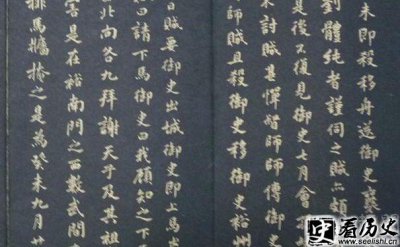 未即殺移舟送御史襄
劉體純者謹伺之賊六頭
是後不復見御史七月會
未討賊甚憚督師師傅御史
師賊且殺御史移御史裕州
日賊要御史出城御史即上馬
請下馬御史曰我顧知之下
北向各九拜謝天子及其
害是在裕南門之西數武間
排馬牆捨之是為癸未九月廿
看历史
www.seelishi.com